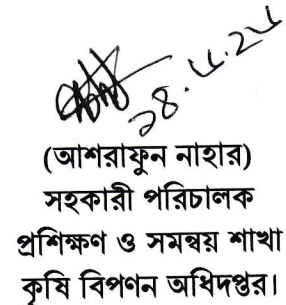 (আশরাফুন নাহার)
সহকারী পরিচালক
প্রশিক্ষণ ও সমন্বয় শাখা
কৃষি বিপণন অধিদপ্তর।